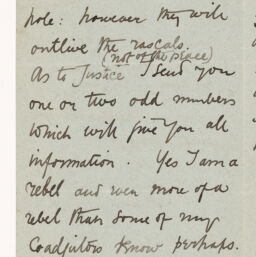 hole: however they will
outlive the rascals.
(not of the peace)
As to Justice I send you
one or two odd numbers
which will give you all
information. Yes I am a
rebel and even more of a
rebel than some of my
Coadjutors know perhaps.